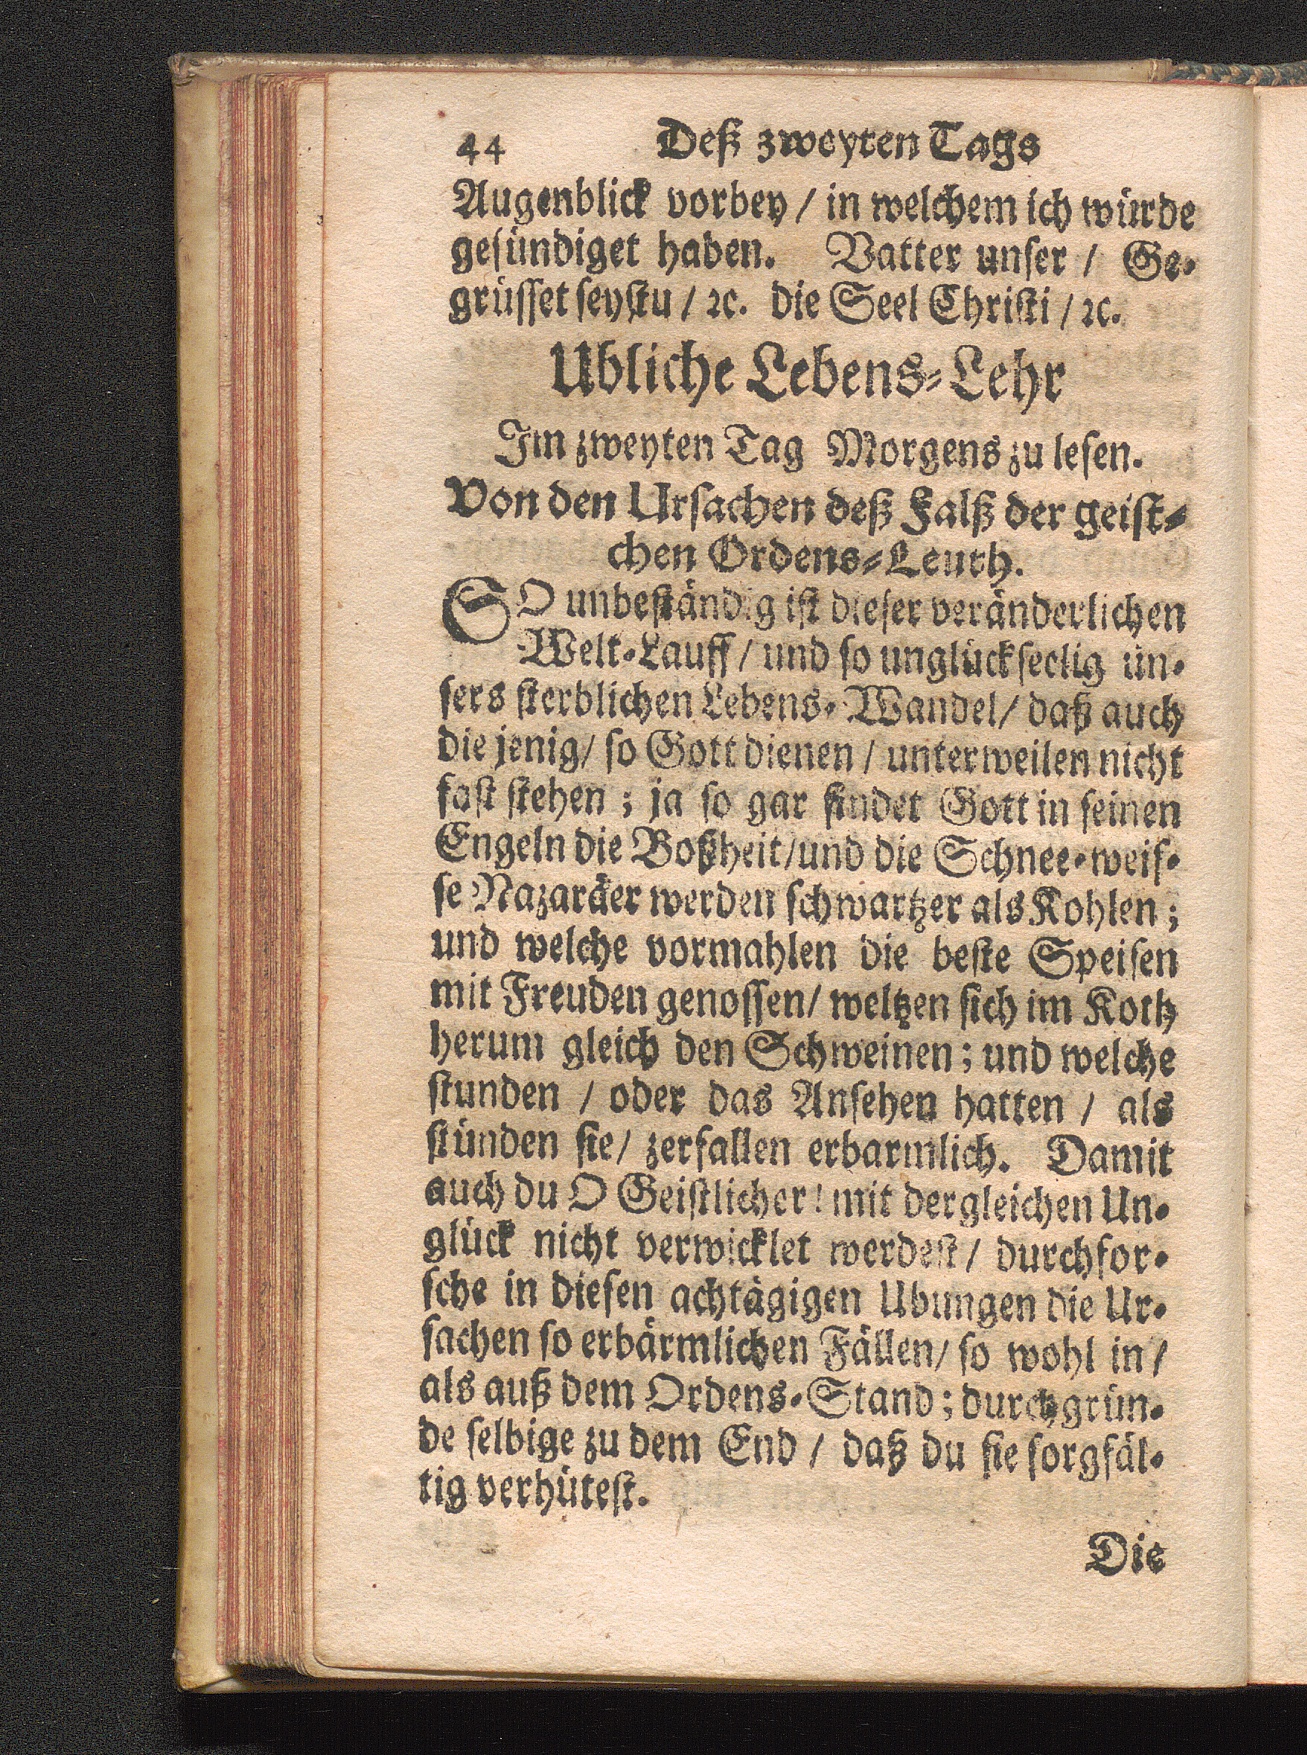 44 Deß zweyten Tags
Augenblick vorbey / in welchem ich würde
gesündiget haben. Vatter unser / Ge-
grüsset seystu / ꝛc. die Seel Christi / ꝛc.
Ubliche Lebens-Lehr
Im zweyten Tag Morgens zu lesen.
Von den Ursachen deß Falß der geist-
chen Ordens-Leuth.
SO unbeständig ist dieser veränderlichen
Welt-Lauff / und so unglückseelig un-
sers sterblichen Lebens-Wandel / daß auch
die jenig / so Gott dienen / unterweilen nicht
fast stehen ; ja so gar findet Gott in seinen
Engeln die Boßheit / und die Schnee-weis-
se Nazaräer werden schwartzer als Kohlen ;
und welche vormahlen die beste Speisen
mit Freuden genossen / weltzen sich im Koth
herum gleich den Schweinen ; und welche
stunden / oder das Ansehen hatten / als
stünden sie / zerfallen erbarmlich. Damit
auch du O Geistlicher ! mit dergleichen Un-
glück nicht verwicklet werdest / durchfor-
sche in diesen achtägigen Ubungen die Ur-
sachen so erbärmlichen Fällen / so wohl in /
als auß dem Ordens-Stand ; durchgrün-
de selbige zu dem End / daß du sie sorgfäl-
tig verhütest.
Die